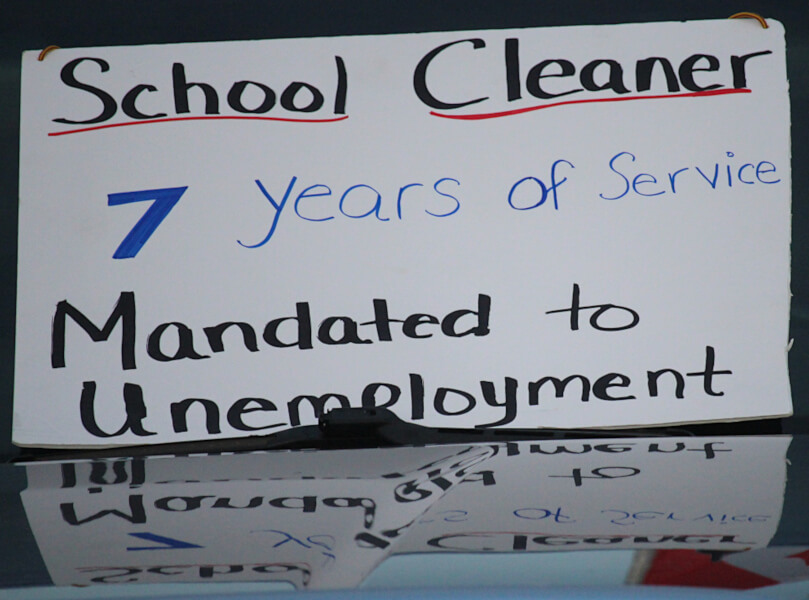 School Cleaner
7 years of Service
Mandated to
Unemployment